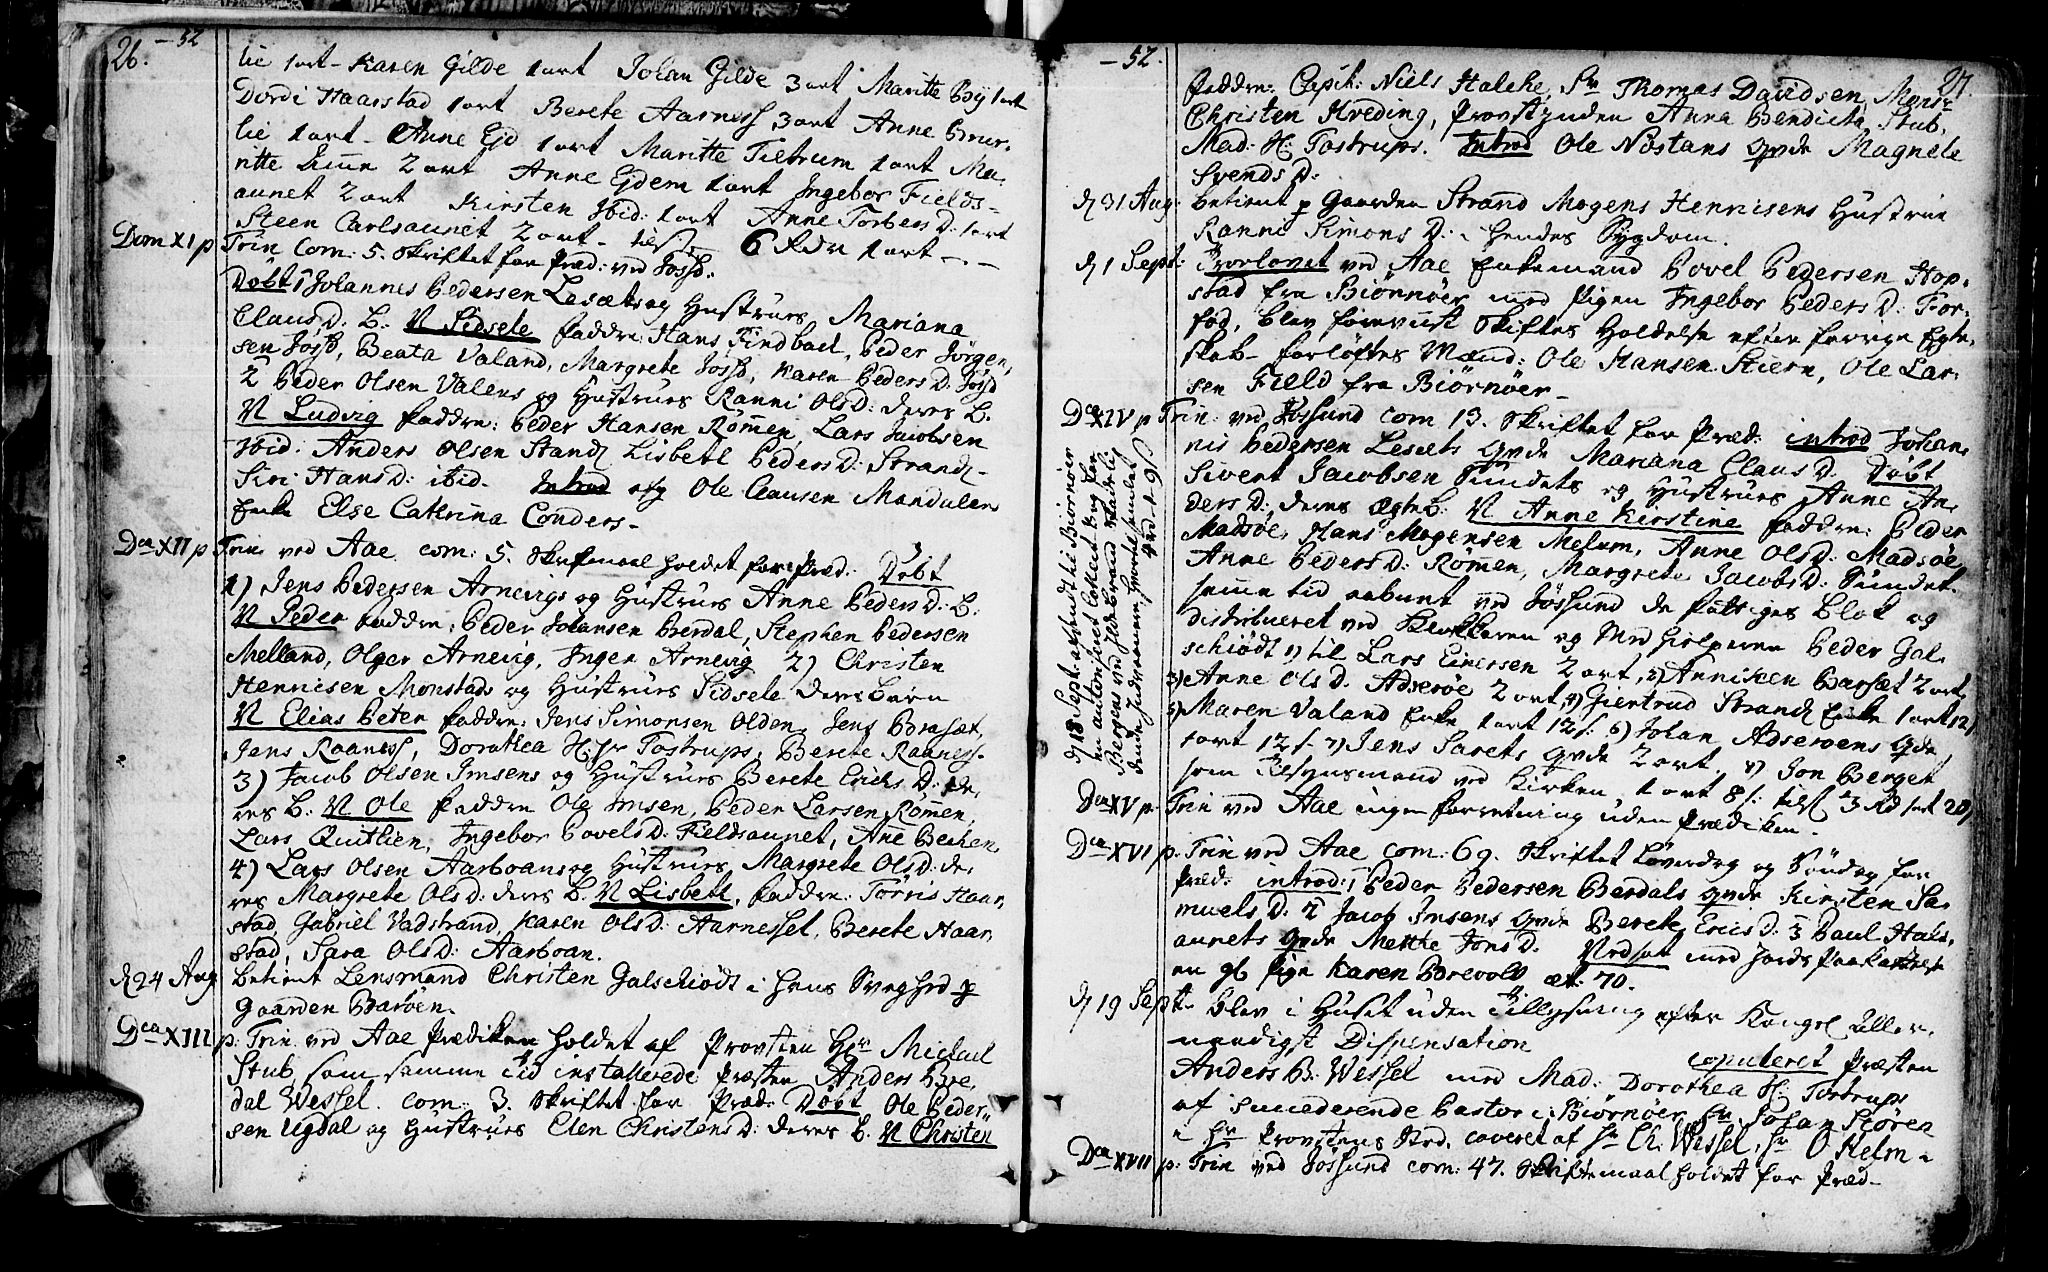 26. - 52
lie 1 ort - Karen Gilde 1 ort Johan Gilde 3 ort Maritte By 1 ort
Dordi Haarstad 1 ort Berete Aarness 3 ort Anne Brur-
lie 1 ort - Anne Ejd 1 ort Maritte Tiltrum 1 ort Ma-
ritte 2 ort Anne Ejdem 1 ort Ingebor Fields-
aunet 2 ort Kirsten Ibid: 1 ort Anne Torbers D: 1 ort
Steen Carlsaunet 2 ort - 6 Rdr 1 ort - . -
Dom XI p Trin Com: 5. Skriftet for Præd: ved Jøss:
Døbt 1 Johannes Pedersen Lesets og Hustrues Mariana
Claus D: B. N Sidsele Faddre: Hans Findbad, Peder Jørgen,
sen Jøss, Beata Valand, Margrete Jøss, Karen Peders D: Jøss
2 Peder Olsen Valens og Hustrues Ranni Ols D: deres B.
N Ludvig Faddre: Peder Hansen Rømen, Lars Jacobsen
Ibid: Anders Olsen Strand, Lisbeth Peders D: Strand -
Siri Hans D: ibid. Introd Ole Clausen Mandalen
Enke Else Cathrina Conders -
Dca XII p Trin ved Aae com: 5. Skriftemaal holdet for Præd: Døbt
1) Jens Pedersen Arnevigs og Hustrues Anne Peders D: B:
N Peder Faddre: Peder Johansen Berdal, Stephen Pedersen
Melland, Olger Arnevig, Inger Arnevig 2) Christen
Henrissen Monstads og Hustrues Sidsele deres barn
N Elias Peter Faddre: Jens Simonsen Olden, Jens Borsæt,
Jens Raaness, Dorothea H: Sr Tostrups, Berete Raaness.
3) Jacob Olsen Imsens og Hustrues Berete Erichs D: de-
res B: N Ole Faddre Ole Imsen, Peder Larsen Rømen,
Lars Quitlien, Ingebor Povels D: Fieldsaunet, Ane
4) Lars Olsen Aarboans og Hustrues Margrete Ols D: de-
res Margrete Ols D: deres B. N Lisbeth, Faddre: Tørris Haar-
stad, Gabriel Vadstrand, Karen Ols D: Aarnesset, Berete Haar-
stad, Sara Ols D: Aarboan.
d 24 Aug betient Lensmand Christen Galschiødt i hans Svaghed p
Gaarden Barøen.
Dca XIII p. Trin. ved Aae Prædiken holdet af Provsten Hr Michael
Stub som samme Tid installerede Præsten Anders Bre-
dal Wessel. com: 3. Skriftet for Præd. Døbt Ole Peder-
sen Ugdal og Hustrues Elen Christens D: deres B. N Christen
- 52. 27.
Faddre: Capit: Niels Halche, Sr Thomas Davidsen, Monsr
Christen Hveding, Provstinden Anna Bendicta Stub,
Mad: H: Tostrups. Introd Ole Nøstans Qvde Magnele
Svends D:
d 31 Aug: betient p Gaarden Strand Mogens Henrissens Hustrue
Ranni Simons D: i hendes Sygdom.
d 1 Sept: Trovlovet ved Aae Enkemand Povel Pedersen Hop-
stad fra Biørnøer med Pigen Ingebor Peders D: For-
fod, blev foreviist Skiftes Holdelse efter forrige Egte-
skab - Forløftes Mænd: Ole Hansen Stiern, Ole Lar-
sen Field fra Biørnøer -
Dca XIV p Trin: ved Jøssund com 13. Skriftet for Præd: introd Johan-
nis Pedersen Lesets Qvde Mariana Claus D. Døbt
Sivert Jacobsen Sundets og Hustrues Anne An-
ders D: deres Egte B: N Anne Kirstine Faddre: Peder
Madsøe, Hans Mogensen Melum, Anne Ols D: Madsøe,
Anne Peders D: Rømen, Margrete Jacobs D: Sundet.
samme tid aabnet ved Jøssund de fattiges Blok og
distribueret ved Klokkeren og Medhielperne Peder Gal-
schiødt 1) til Lars Einersen 2 ort, 2) Anniken Barsæt 2 ort,
3) Anne Ols D. Adserøe 2 ort, 4) Giertrud Strand Enke 1 ort 12 s
5) Maren Valand Enke 1 ort 12 s. 6) Johan Adseroens Qvde
1 ort 12 s. 7) Jens Sarets Qvde 2 ort. 8) Jon Berget
som Tilsynsmand ved Kirken 1 ort 8 s. tils 3 Rd 1 ort 20 s
d 18 Sept. afsendt til Biørnøer
Bergens ved Hildebrand
Dca XV p. Trin ved Aae ingen forretning uden Prædiken.
Dca XVI p. Trin ved Aae com: 69. Skriftet Løverdag og Søndag for
Præd. introd: 1 Peder Pedersen Berdals Qvde Kirsten Sa-
muels D: 2 Jacob Imsens Qvde Berete Erics D: 3 Paul Hals-
aunets Qvde Mette Jons D. Nedsat med Jords Paakastelse
en gl Pige Karen Brevold æt: 70.
d 19 Sept. blev i Huset uden Tillysning efter Kongel Aller-
naadigst Dispensation copuleret Præsten
Anders B: Wessel med Mad: Dorothea H: Tostrups
af Succederende Pastor i Biørnøer Hr Johan Stören
i Hr Provstens Sted, caveret af Sr Ch: Wessel, Sr O Helm -
Dca XVII p: Trin ved Jøssund com: 47. Skriftemaal holdet for Præd -